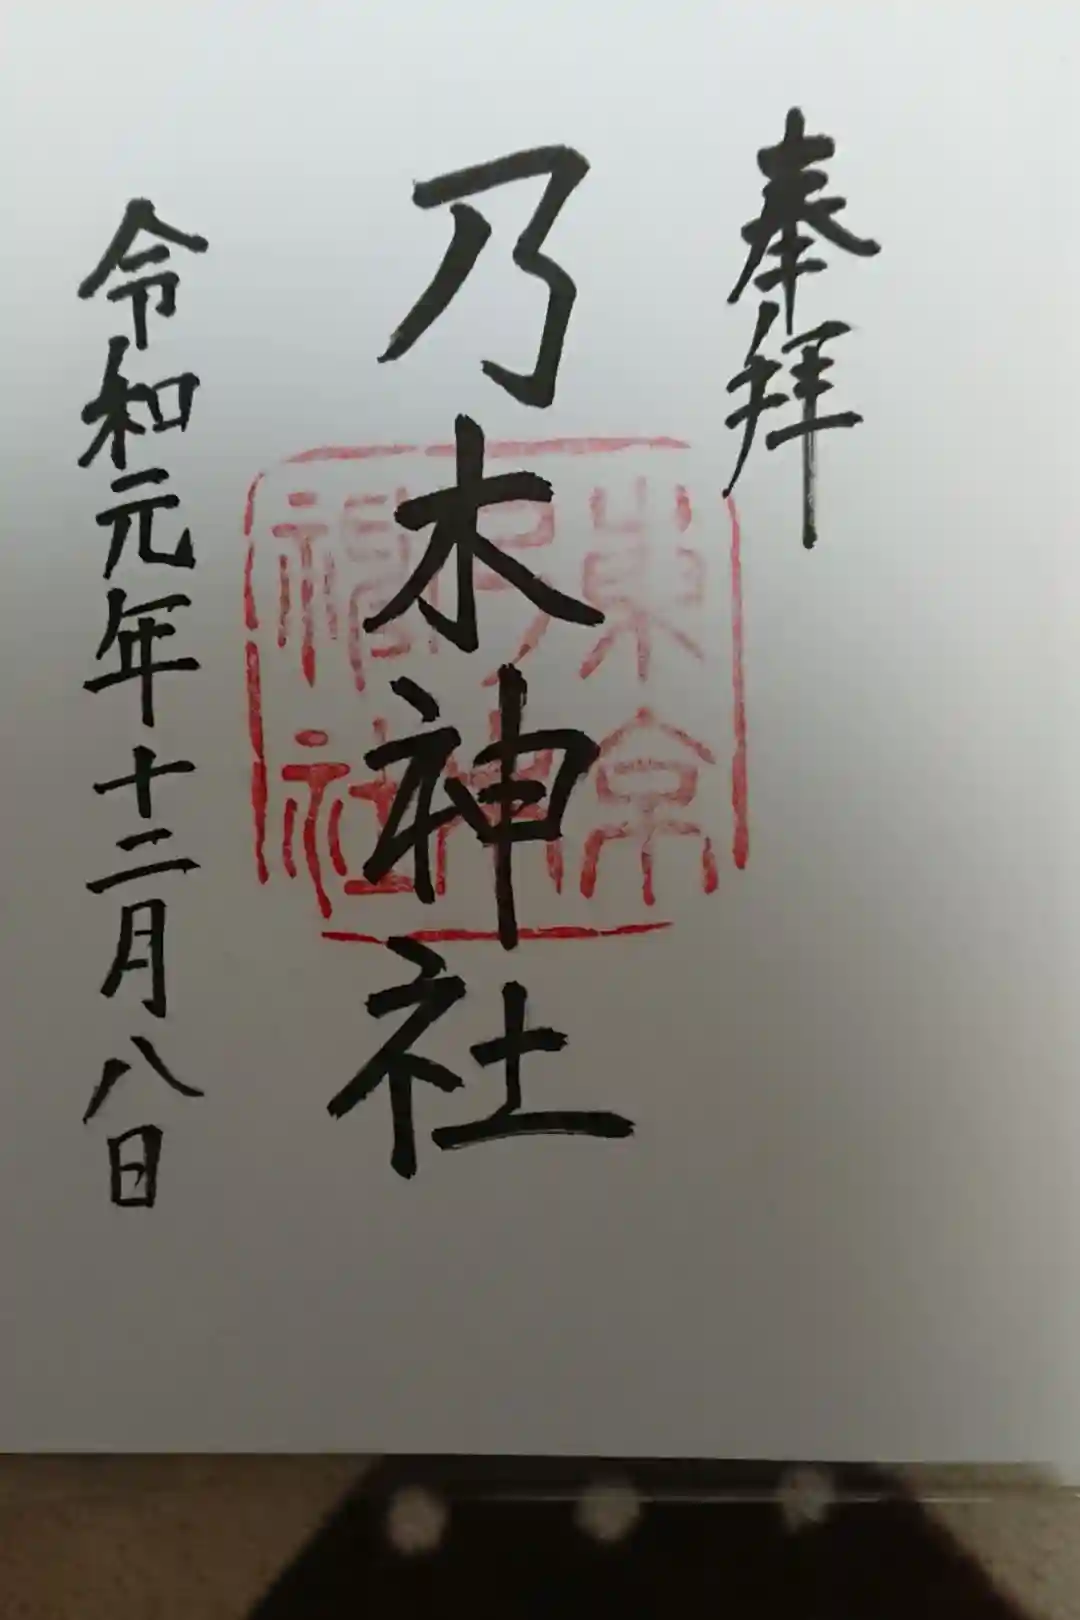 奉拝
乃木神社
東京
乃木
神社
令和元年十二月八日